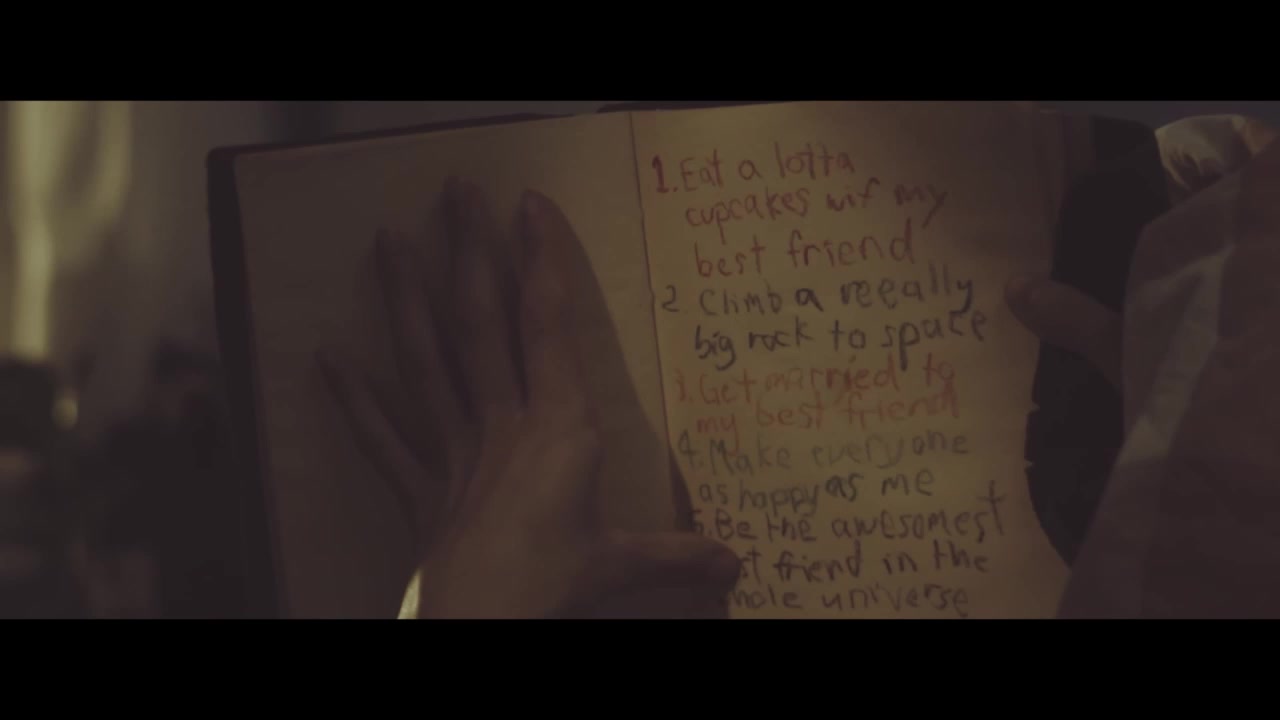 1. Eat a lotta
cupcakes wif my
best friend
2. Climb a reeally
big rock to space
3. Get married to
my best friend
4. Make everyone
as happy as me
5. Be the awesomest
friend in the
universe